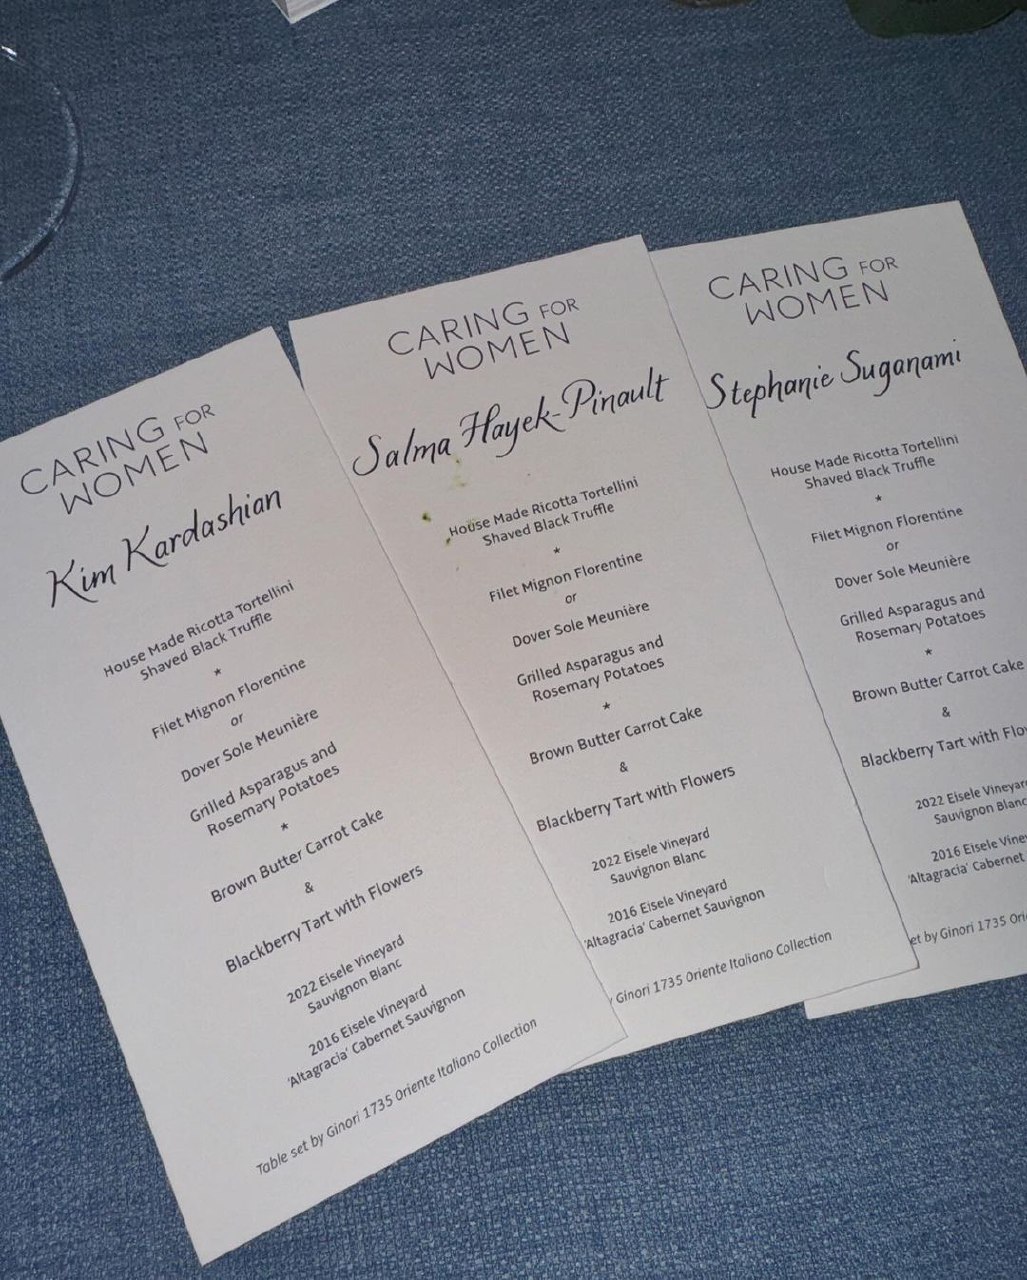 CARING FOR
WOMEN
Kim Kardashian
House Made Ricotta Tortellini
Shaved Black Truffle
*
Filet Mignon Florentine
or
Dover Sole Meunière
Grilled Asparagus and
Rosemary Potatoes
*
Brown Butter Carrot Cake
&
Blackberry Tart with Flowers
2022 Eisele Vineyard
Sauvignon Blanc
2016 Eisele Vineyard
'Altagracia' Cabernet Sauvignon
Table set by Ginori 1735 Oriente Italiano Collection
CARING FOR
WOMEN
Salma Hayek-Pinault
House Made Ricotta Tortellini
Shaved Black Truffle
*
Filet Mignon Florentine
or
Dover Sole Meunière
Grilled Asparagus and
Rosemary Potatoes
*
Brown Butter Carrot Cake
&
Blackberry Tart with Flowers
2022 Eisele Vineyard
Sauvignon Blanc
2016 Eisele Vineyard
'Altagracia' Cabernet Sauvignon
Ginori 1735 Oriente Italiano Collection
CARING FOR
WOMEN
Stephanie Suganami
House Made Ricotta Tortellini
Shaved Black Truffle
*
Filet Mignon Florentine
or
Dover Sole Meunière
Grilled Asparagus and
Rosemary Potatoes
*
Brown Butter Carrot Cake
&
Blackberry Tart with Flo
2022 Eisele Vineyar
Sauvignon Blanc
2016 Eisele Vine
'Altagracia' Cabernet
et by Ginori 1735 Ori